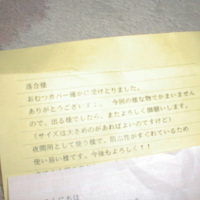 落合様
おむつカバー確かに受けとりました。
ありがとうございます。 今回の様な物でかまいません
ので、出る様でしたら、またよろしく御願いします。
(サイズは大きめのがあればよいのですけど)
夜間用として使う様で、防水性がすぐれているため
使い易い様です。今後もよろしく!!